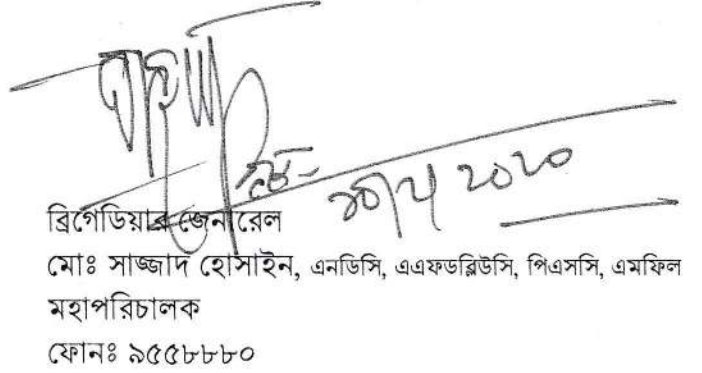 ২০২০
ব্রিগেডিয়ার জেনারেল
মোঃ সাজ্জাদ হোসাইন, এনডিসি, এএফডব্লিউসি, পিএসসি, এমফিল
মহাপরিচালক
ফোনঃ ৯৫৫৮৮৮০